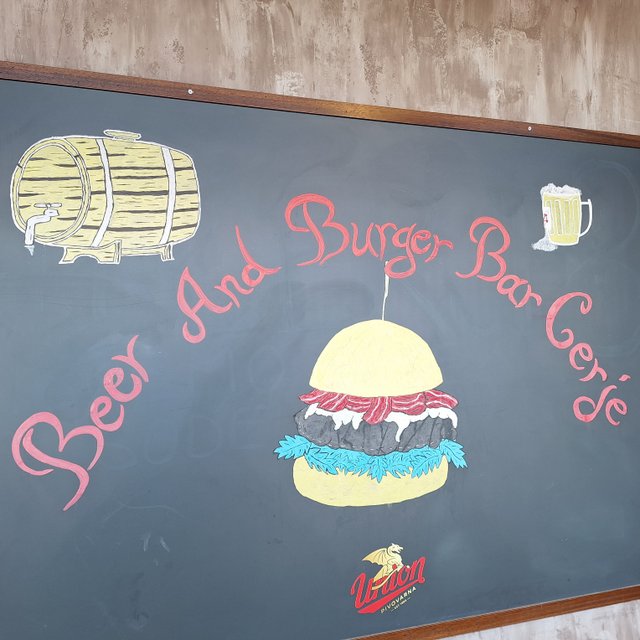 Beer And Burger Bar Cerje
Union
PIVOVARNA